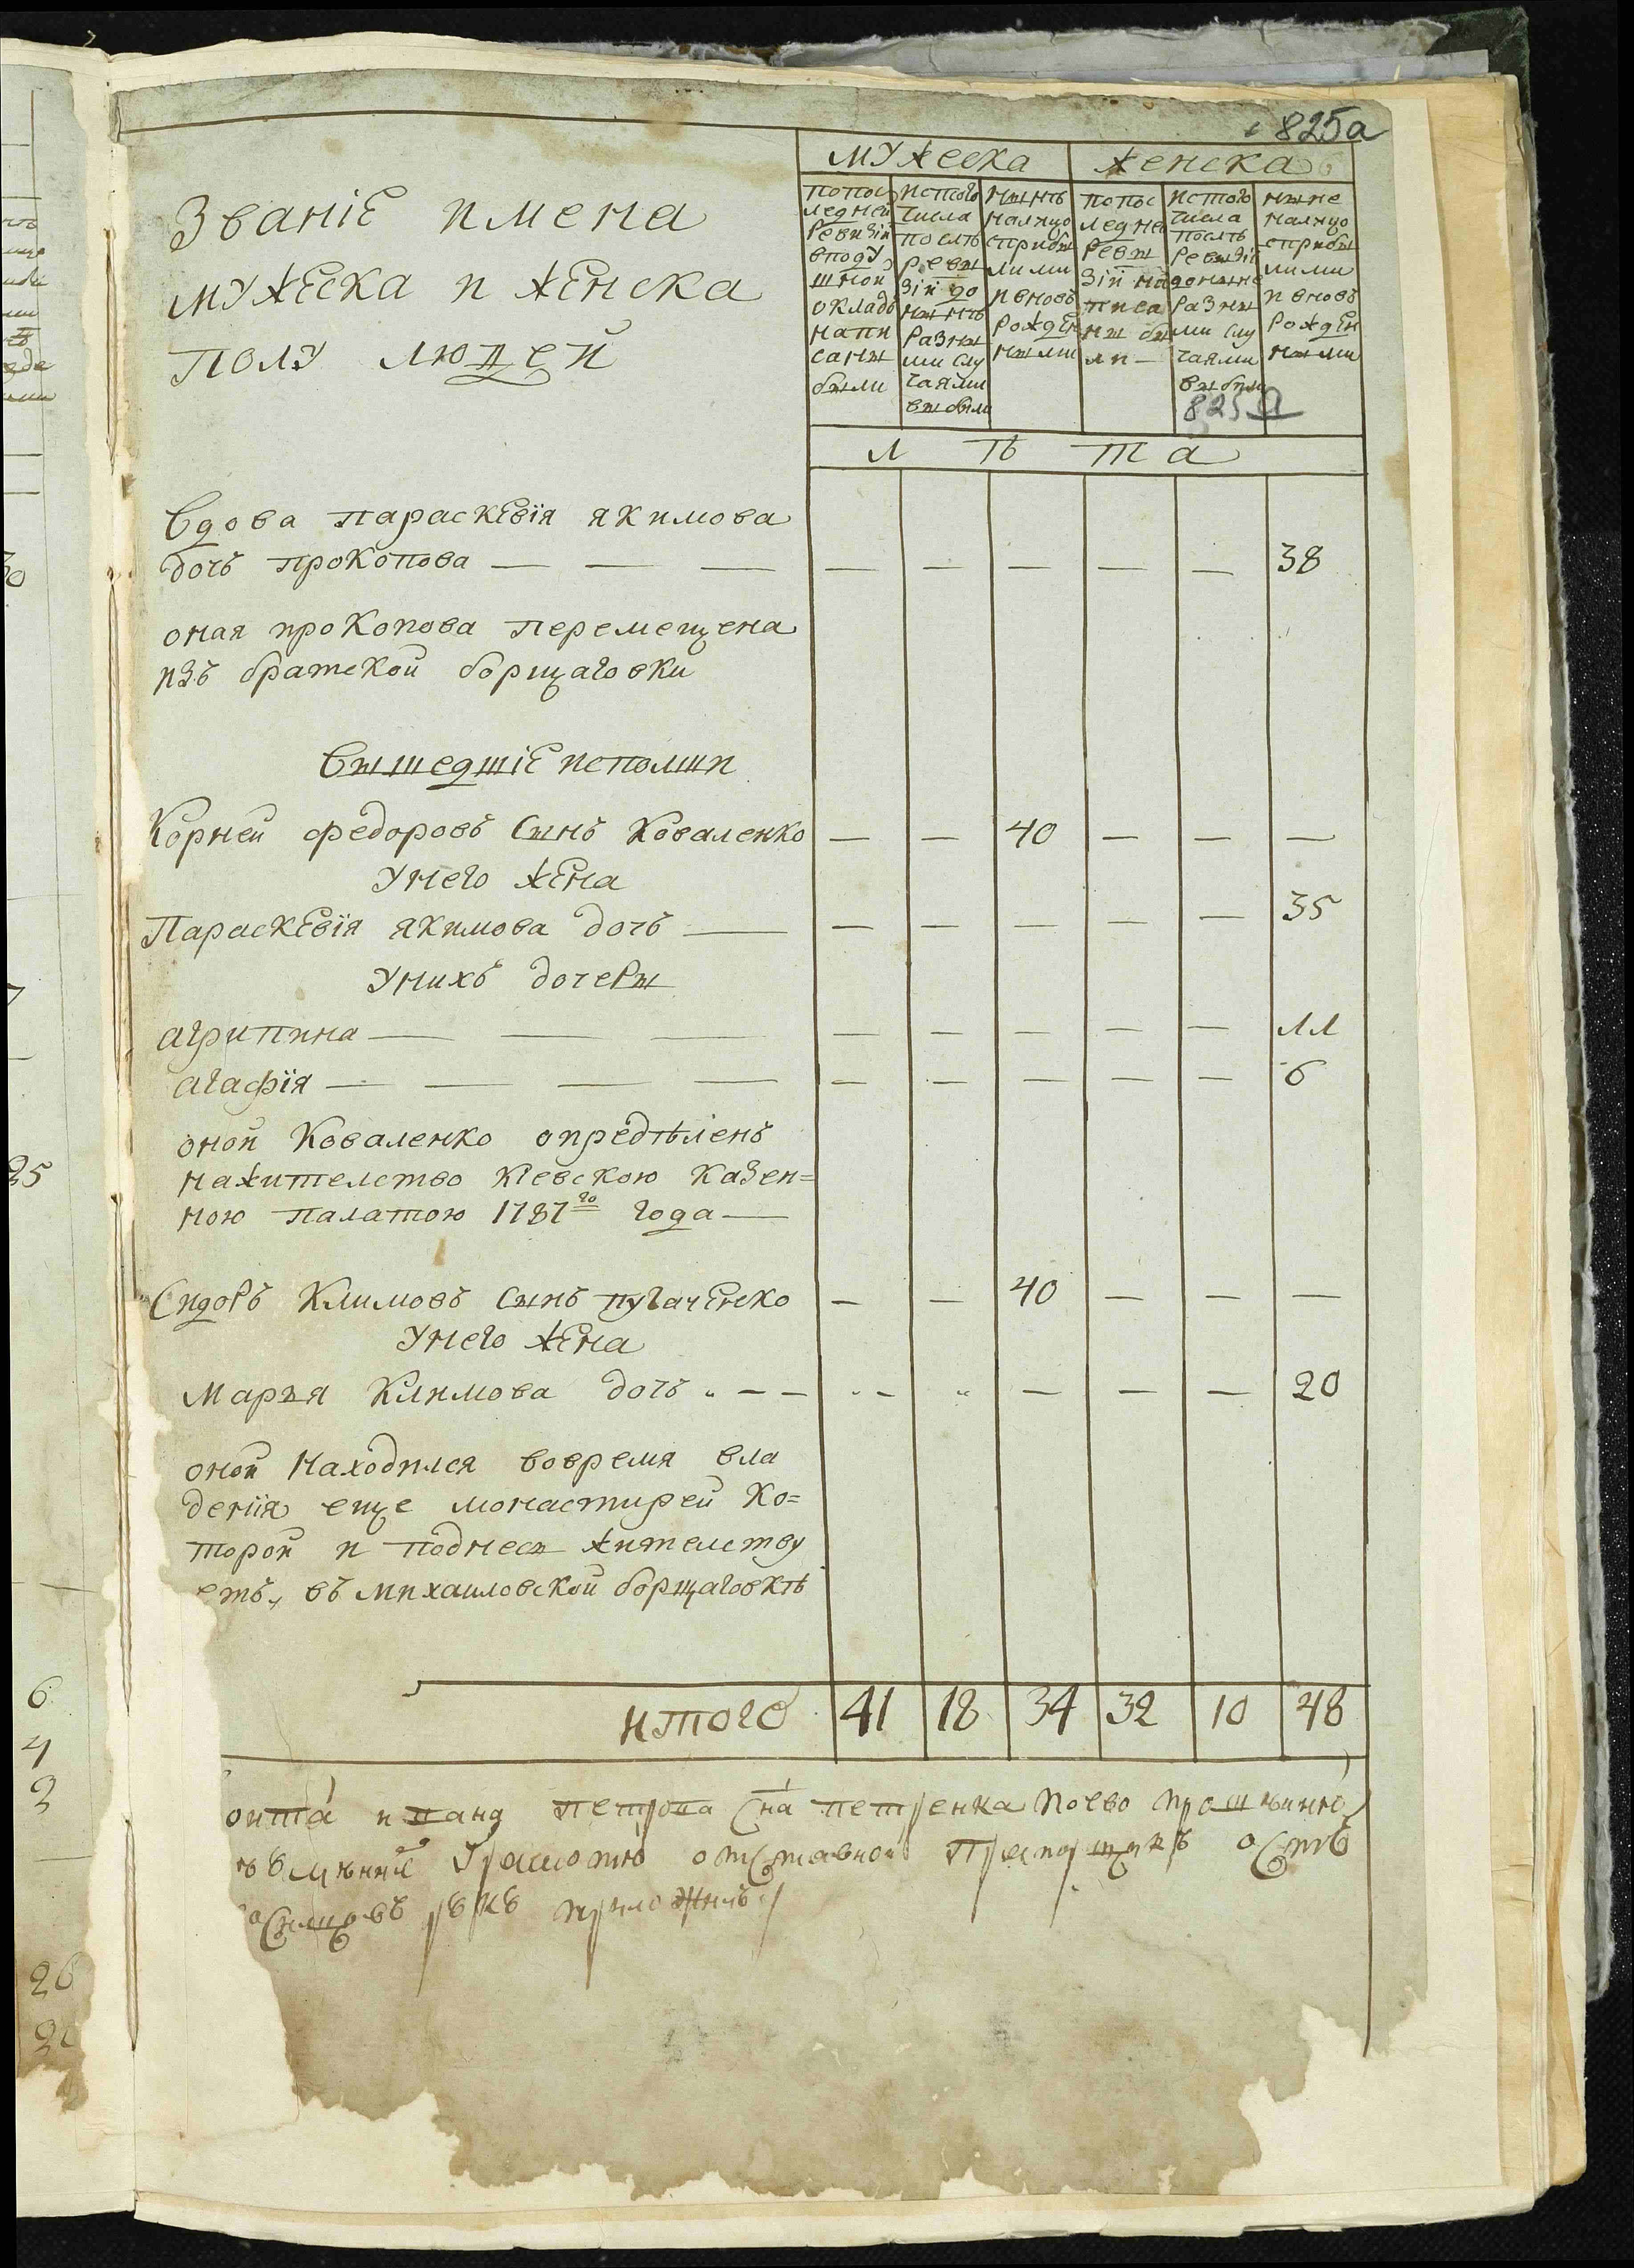 825а
мужеска женска
Званіе имена
мужеска и женска
полу людей
попос
ледней
ревизіи
вподу
шной
окладъ
напи
саны
были
истого
числа
послѣ
реви
зіи до
нынѣ
разны
ми слу
чаями
выбыло
нынѣ
налицо
сприбы
лыми
ивновь
рожден
ными
попос
ледней
реви
зіи на
писа
ны бы
ли —
истого
числа
послѣ
ревизіи
донынѣ
разны
ми слу
чаями
выбыли
нынѣ
налицо
сприбы
лыми
ивновь
рожден
ными
825а
лѣта
Вдова Параскевія якимова
дочь прокопова — — — — — — — — 38
оная прокопова перемещена
изъ братской борщаговки
Вышедшіе исполши
Корней федоровъ сынъ Коваленко — — 40 — — —
Унего жена
Параскевія якимова дочь — — — — — — 35
Унихъ дочеры
агрипина — — — — — — — — 11
агафія — — — — — — — — — 6
оной Коваленко опредѣленъ
нажителство Кіевскою Казен=
ною палатою 1787го года —
Сидоръ Климовъ сынъ пугаченко — — 40 — — —
Унего жена
Марія Климова дочь — — — — — 20
оной Находился вовремя вла
деніія еще монастирей Ко=
торой и поднесь жителству
етъ, въ михаиловской борщаговкѣ
итого 41 18 34 32 10 48
петрона сна петренка поево прошению
грамотю отставной Прапорщикъ
руку приложилъ